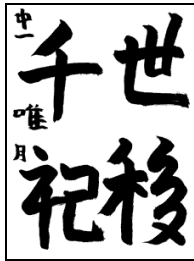 世移
千祀
中一 唯月